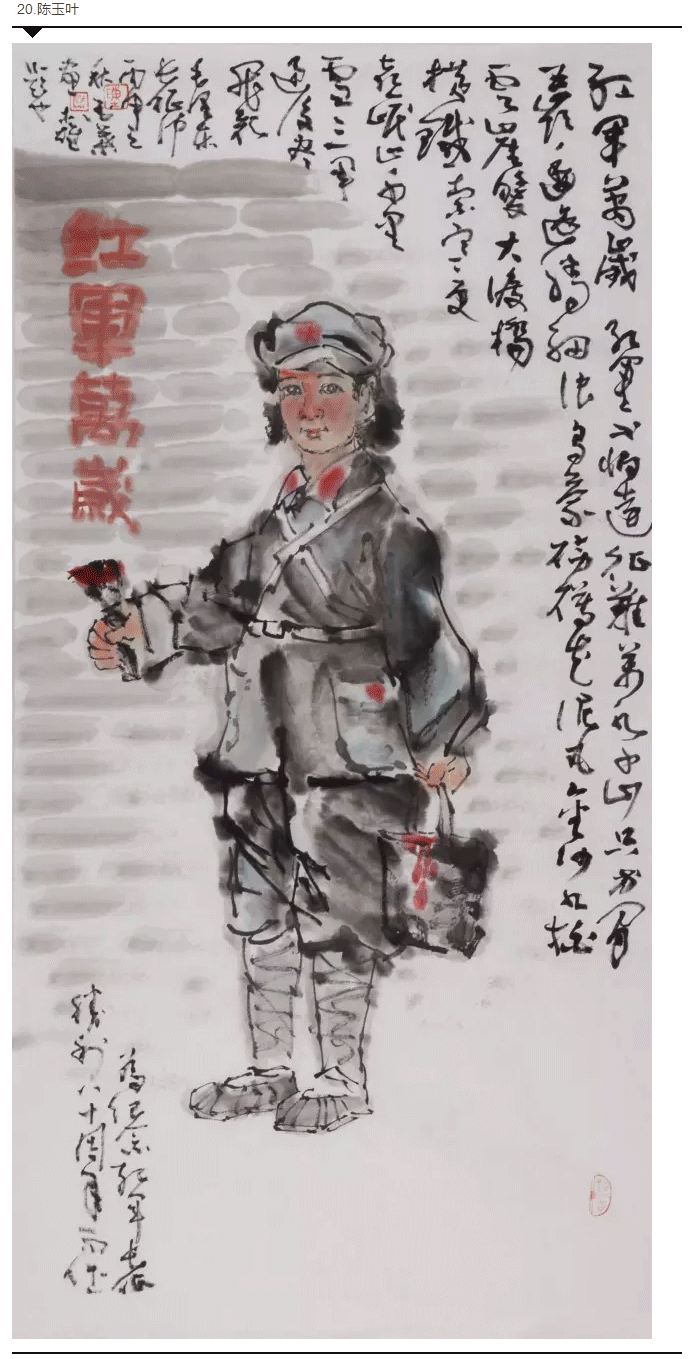 20.陈玉叶
紅軍萬歲 紅軍不怕遠征難萬水千山只等閑
五嶺逶迤騰細浪烏蒙磅礴走泥丸金沙水拍
雲崖暖大渡橋
橫鐵索寒更
喜岷山千里
雪三軍
過後盡
開顏
毛澤東
長征詩
丙申之
秋玉葉
紅軍萬歲
為紀念紅軍長征
勝利八十周年而作